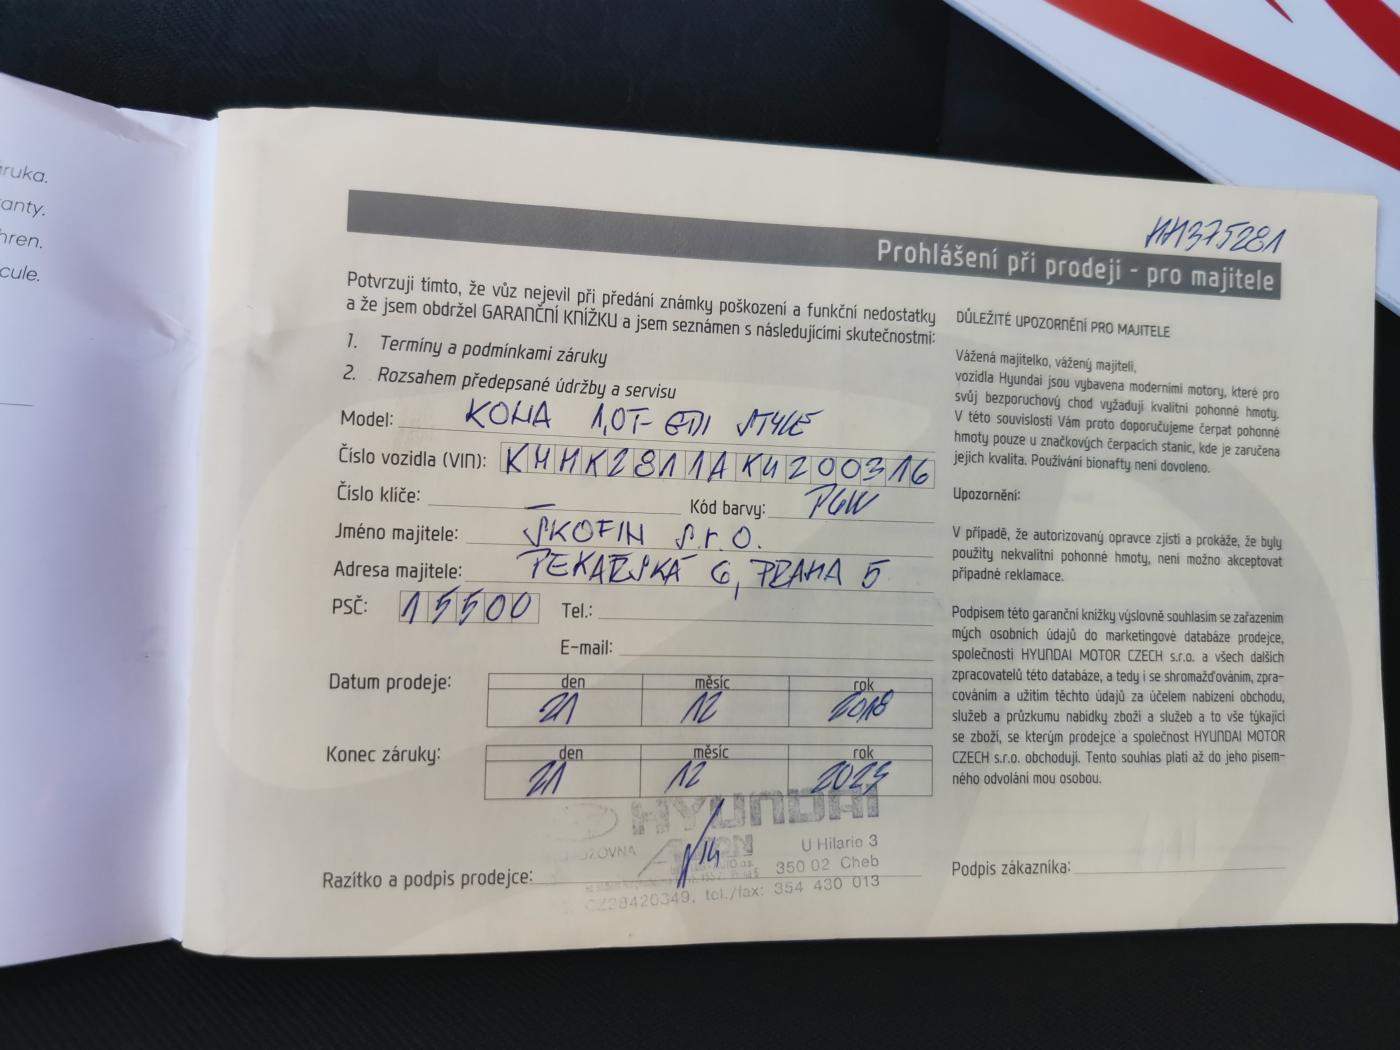 ruka.
anty.
hren.
cule.
HH375281
Prohlášení při prodeji - pro majitele
Potvrzuji tímto, že vůz nejevil při předání známky poškození a funkční nedostatky
a že jsem obdržel GARANČNÍ KNÍŽKU a jsem seznámen s následujícími skutečnostmi:
1. Termíny a podmínkami záruky
2. Rozsahem předepsané údržby a servisu
Model: KONA 1,0T-GDI STYLE
Číslo vozidla (VIN): KMHK2811AKU200316
Číslo klíče: Kód barvy: PGW
Jméno majitele: ŠKOFIN s.r.o.
Adresa majitele: PEKAŘSKÁ 6, PRAHA 5
PSČ: 15500 Tel.:
E-mail:
Datum prodeje: den měsíc rok
21 12 2018
Konec záruky: den měsíc rok
21 12 2023
HYUNDAI
U Hilarie 3
350 02 Cheb
Razítko a podpis prodejce:
CZ28420349, tel./fax: 354 430 013
DŮLEŽITÉ UPOZORNĚNÍ PRO MAJITELE
Vážená majitelko, vážený majiteli,
vozidla Hyundai jsou vybavena moderními motory, které pro
svůj bezporuchový chod vyžadují kvalitní pohonné hmoty.
V této souvislosti Vám proto doporučujeme čerpat pohonné
hmoty pouze u značkových čerpacích stanic, kde je zaručena
jejich kvalita. Používání bionafty není dovoleno.
Upozornění:
V případě, že autorizovaný opravce zjistí a prokáže, že byly
použity nekvalitní pohonné hmoty, není možno akceptovat
případné reklamace.
Podpisem této garanční knížky výslovně souhlasím se zařazením
mých osobních údajů do marketingové databáze prodejce,
společnosti HYUNDAI MOTOR CZECH s.r.o. a všech dalších
zpracovatelů této databáze, a tedy i se shromažďováním, zpra-
cováním a užitím těchto údajů za účelem nabízení obchodu,
služeb a průzkumu nabídky zboží a služeb a to vše týkající
se zboží, se kterým prodejce a společnost HYUNDAI MOTOR
CZECH s.r.o. obchodují. Tento souhlas platí až do jeho písem-
ného odvolání mou osobou.
Podpis zákazníka: